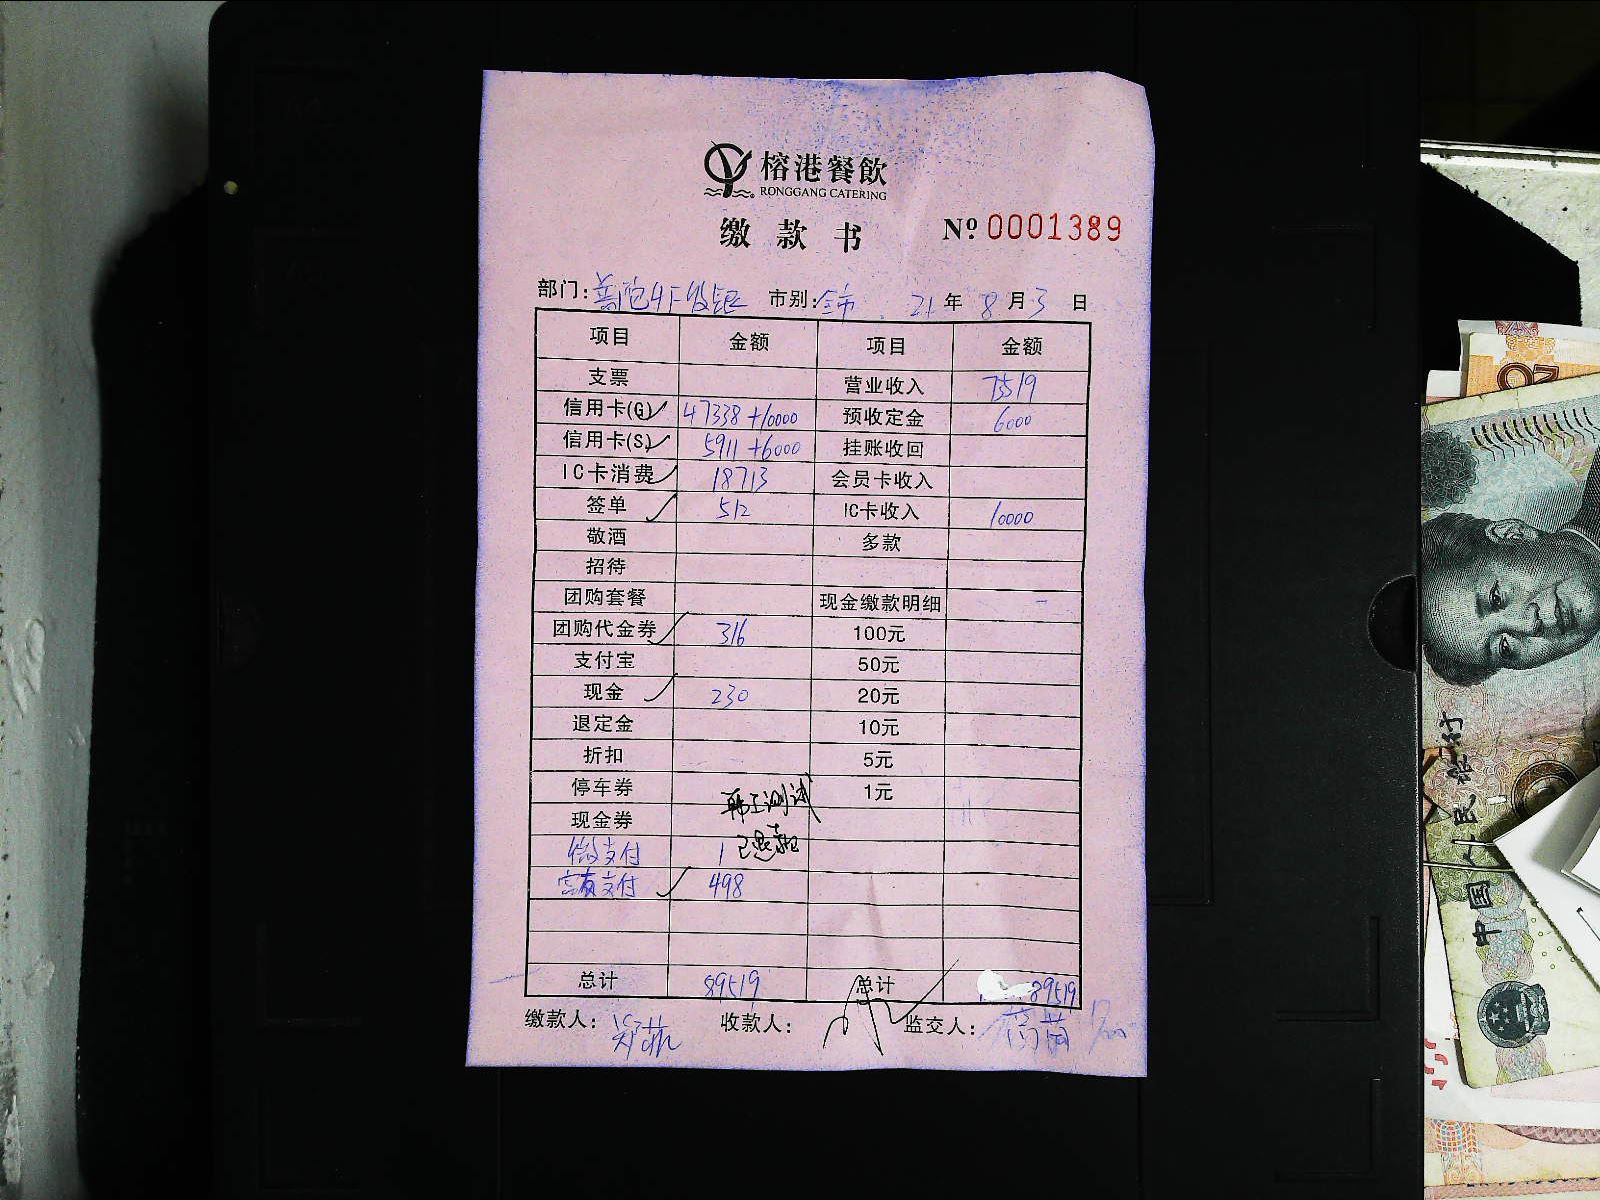 榕港餐飲
RONGGANG CATERING
缴款书 Nº 0001389
部门: 普陀4F收银 市别: 全市 21年8月3日
项目 金额 项目 金额
支票 营业收入 73519
信用卡(G) 47338+10000 预收定金 6000
信用卡(S) 5911+6000 挂账收回
IC卡消费 18713 会员卡收入
签单 512 IC卡收入 10000
敬酒 多款
招待
团购套餐 现金缴款明细
团购代金券 316 100元
支付宝 50元
现金 230 20元
退定金 10元
折扣 5元
停车券 1元
现金券 测试
微支付 1 已退款
富友支付 498
总计 89519 总计 89519
缴款人: 收款人: 监交人:
中国人民银行